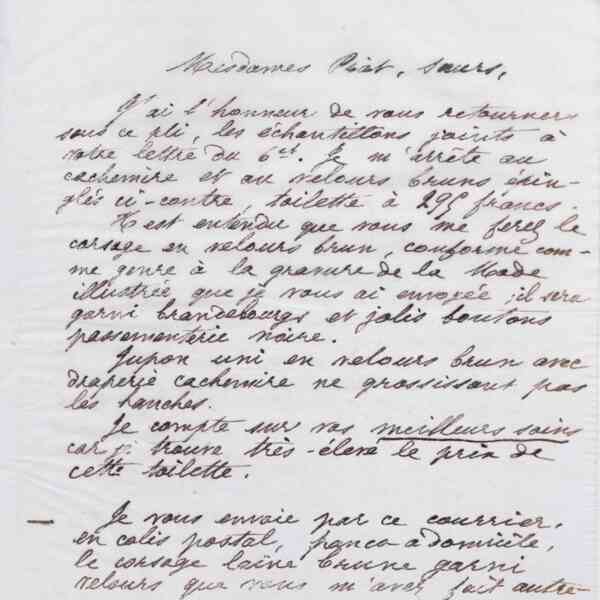 Mesdames Piat, sœurs,
J'ai l'honneur de vous retourner
sous ce pli, les échantillons joints à
votre lettre du 6 ct. Je m'arrête au
cachemire et au velours bruns épin-
glés ci-contre, toilette à 295 francs.
Il est entendu que vous me ferez le
corsage en velours brun, conforme com-
me genre à la gravure de la Mode
illustrée que je vous ai envoyée; il sera
garni brandebourgs et jolis boutons
passementerie noire.
Jupon uni en velours brun avec
draperie cachemire ne grossissant pas
les hanches.
Je compte sur vos meilleurs soins
car je trouve très-élevé le prix de
cette toilette.
Je vous envoie par ce courrier,
en colis postal, franco à domicile,
le corsage laine brune garni
velours que vous m'avez fait autre-